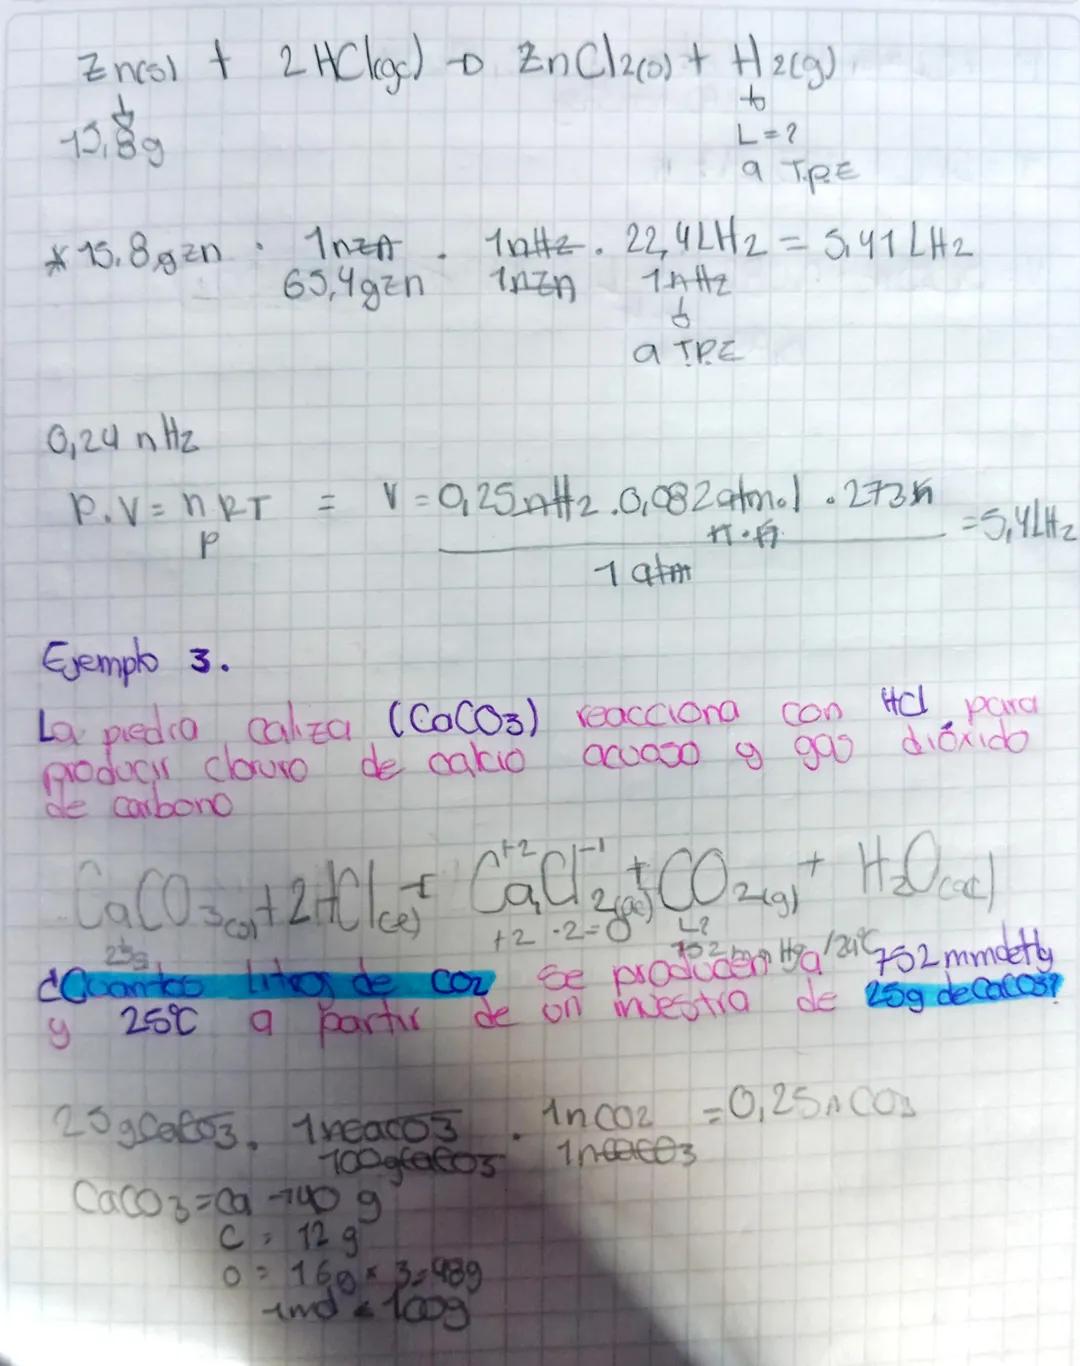 Zn(s) + 2HCl(gc) → ZnCl2(s) + H2(g)
15,8g
L=?
a T.P.E
* 15.8gzn · 1nzn · 1nH2 · 22,4LH2 = 5,41 LH2
65,4gzn 1nZn 1nH2
a T.P.E
0,24 nH2
P.V = nRT = V = 0,25nH2 . 0,082atmol . 273K = 5,4LH2
P 1 atm
Ejemplo 3.
La piedra caliza (CaCO3) reacciona con HCl para
producir cloruro de calcio acuoso y gas dióxido
de carbono
+2 -1
CaCO3(s) + 2HCl → CaCl2(ac) + CO2(g) + H2O(ac)
+2 -2=0 L?
25g 752mmHg
¿Cuantos litros de CO2 se producen a 752mmdeHg
y 25°C a partir de un muestra de 25g deCaCO3?
25gCaCO3 . 1nCaCO3 . 1nCO2 = 0,25nCO3
100gCaCO3 1nCaCO3
CaCO3 = Ca → 40 g
C = 12 g
O = 16g x 3 = 48g
1mol = 100g